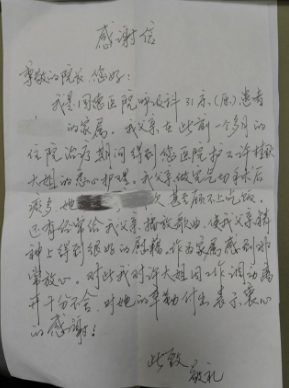 感谢信
尊敬的院长，您好：
我是同德医院呼吸科31床，(原)患者
的家属。我父亲在此前一个多月的
住院治疗期间得到您医院护工许
大姐的悉心护理。我父亲做完气切手术后
痰多，她 次 甚至顾不上吃饭
还有给常给我父亲播放歌曲，使我父亲精
神上得到很好的慰藉，作为家属感到非
常放心。对此我对许大姐因工作调动离
开十分不舍，对她的辛勤付出表示衷心
的感谢！
此致
敬礼